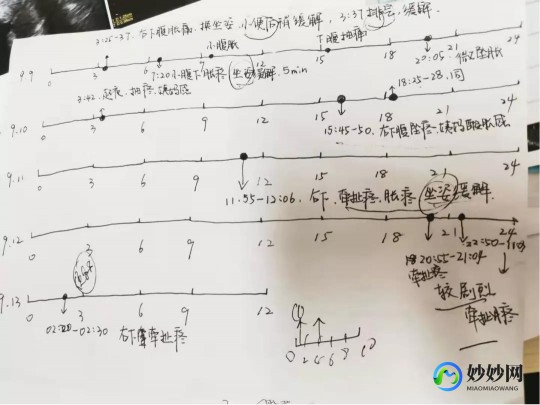 3:25-37. 右下腹胀痛. 换坐姿 小便后稍缓解. 3:37 排完, 缓解.
小腹胀
下腹抽痛
9.9 0 3 6 9 12 15 18 21 24
7:20小腹下胀疼 坐姿缓解. 5min
20:05.
3:42. 起夜. 抽疼.
18:25-28. 同
9.10 0 3 6 9 12 15 18 21 24
15:45-50. 右下腹坠疼.
9.11 0 3 6 9 12 15 18 21 24
11.55-12:06. 右下. 牵扯疼. 胀疼. 坐姿缓解.
9.12 0 3 6 9 12 15 18 21 24
20:55-21:04
牵扯疼
22:50-
较剧烈
牵扯疼
9.13 0 3 6 9 12
-02:30 右下 牵扯疼
0 2 4 6 8 10
妙妙网
MIAOMIAOWANG